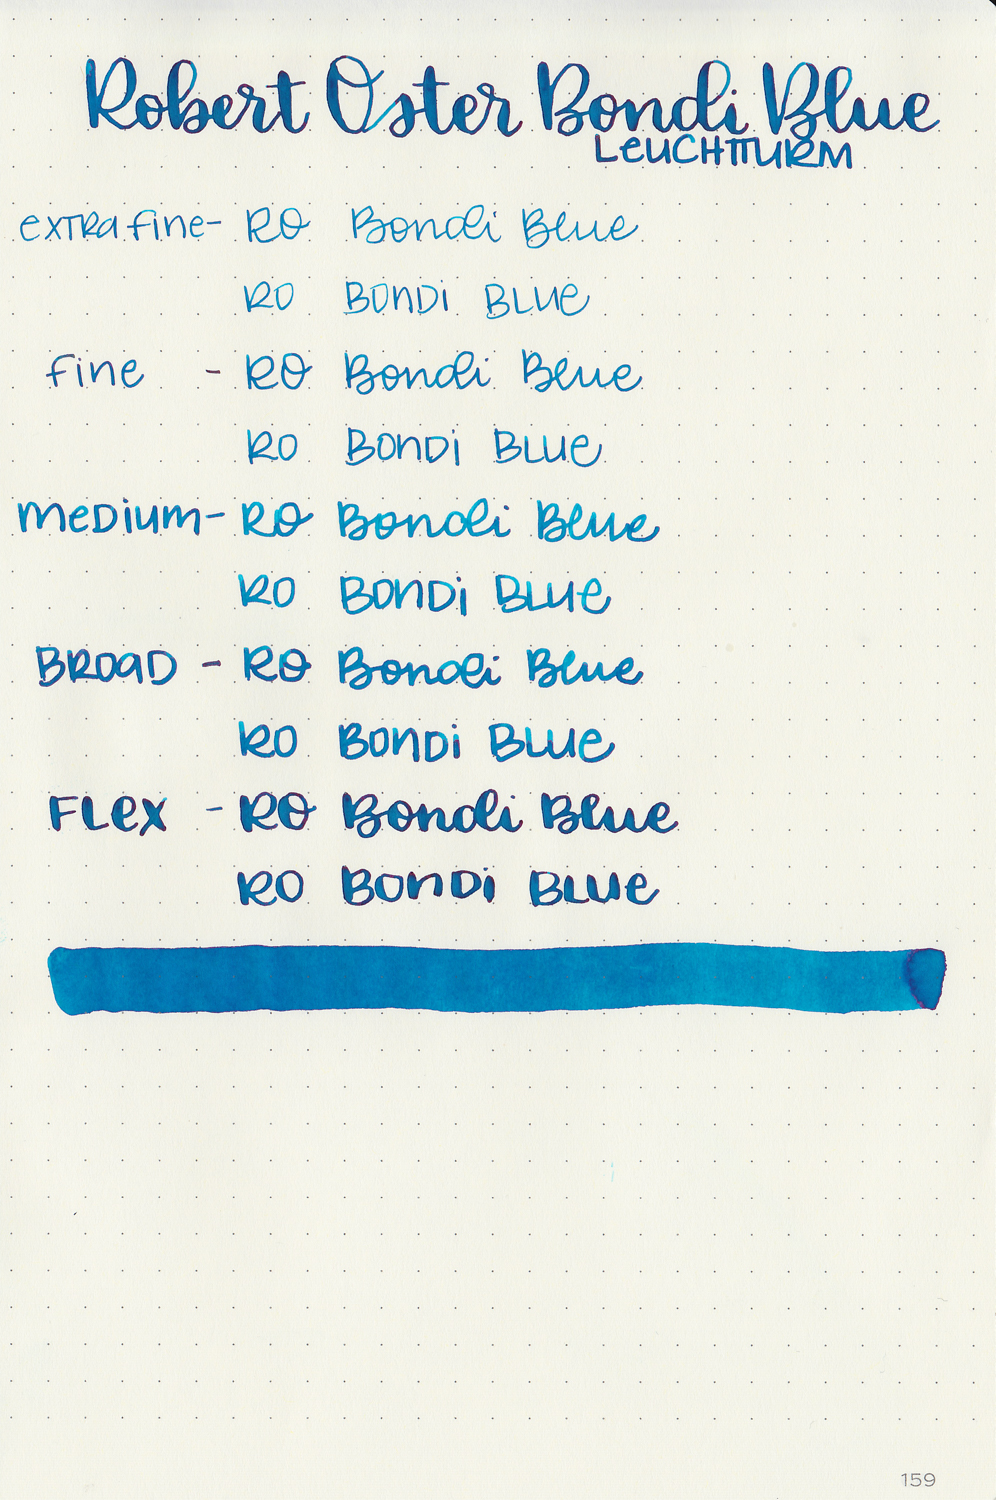 Robert Oster Bondi Blue
LEUCHTTURM
EXTRA FINE- RO Bondi Blue
RO BONDI BLUE
FINE - RO Bondi Blue
RO BONDI BLUE
MEDIUM- RO Bondi Blue
RO BONDI BLUE
BROAD - RO Bondi Blue
RO BONDI BLUE
FLEX - RO Bondi Blue
RO BONDI BLUE
159